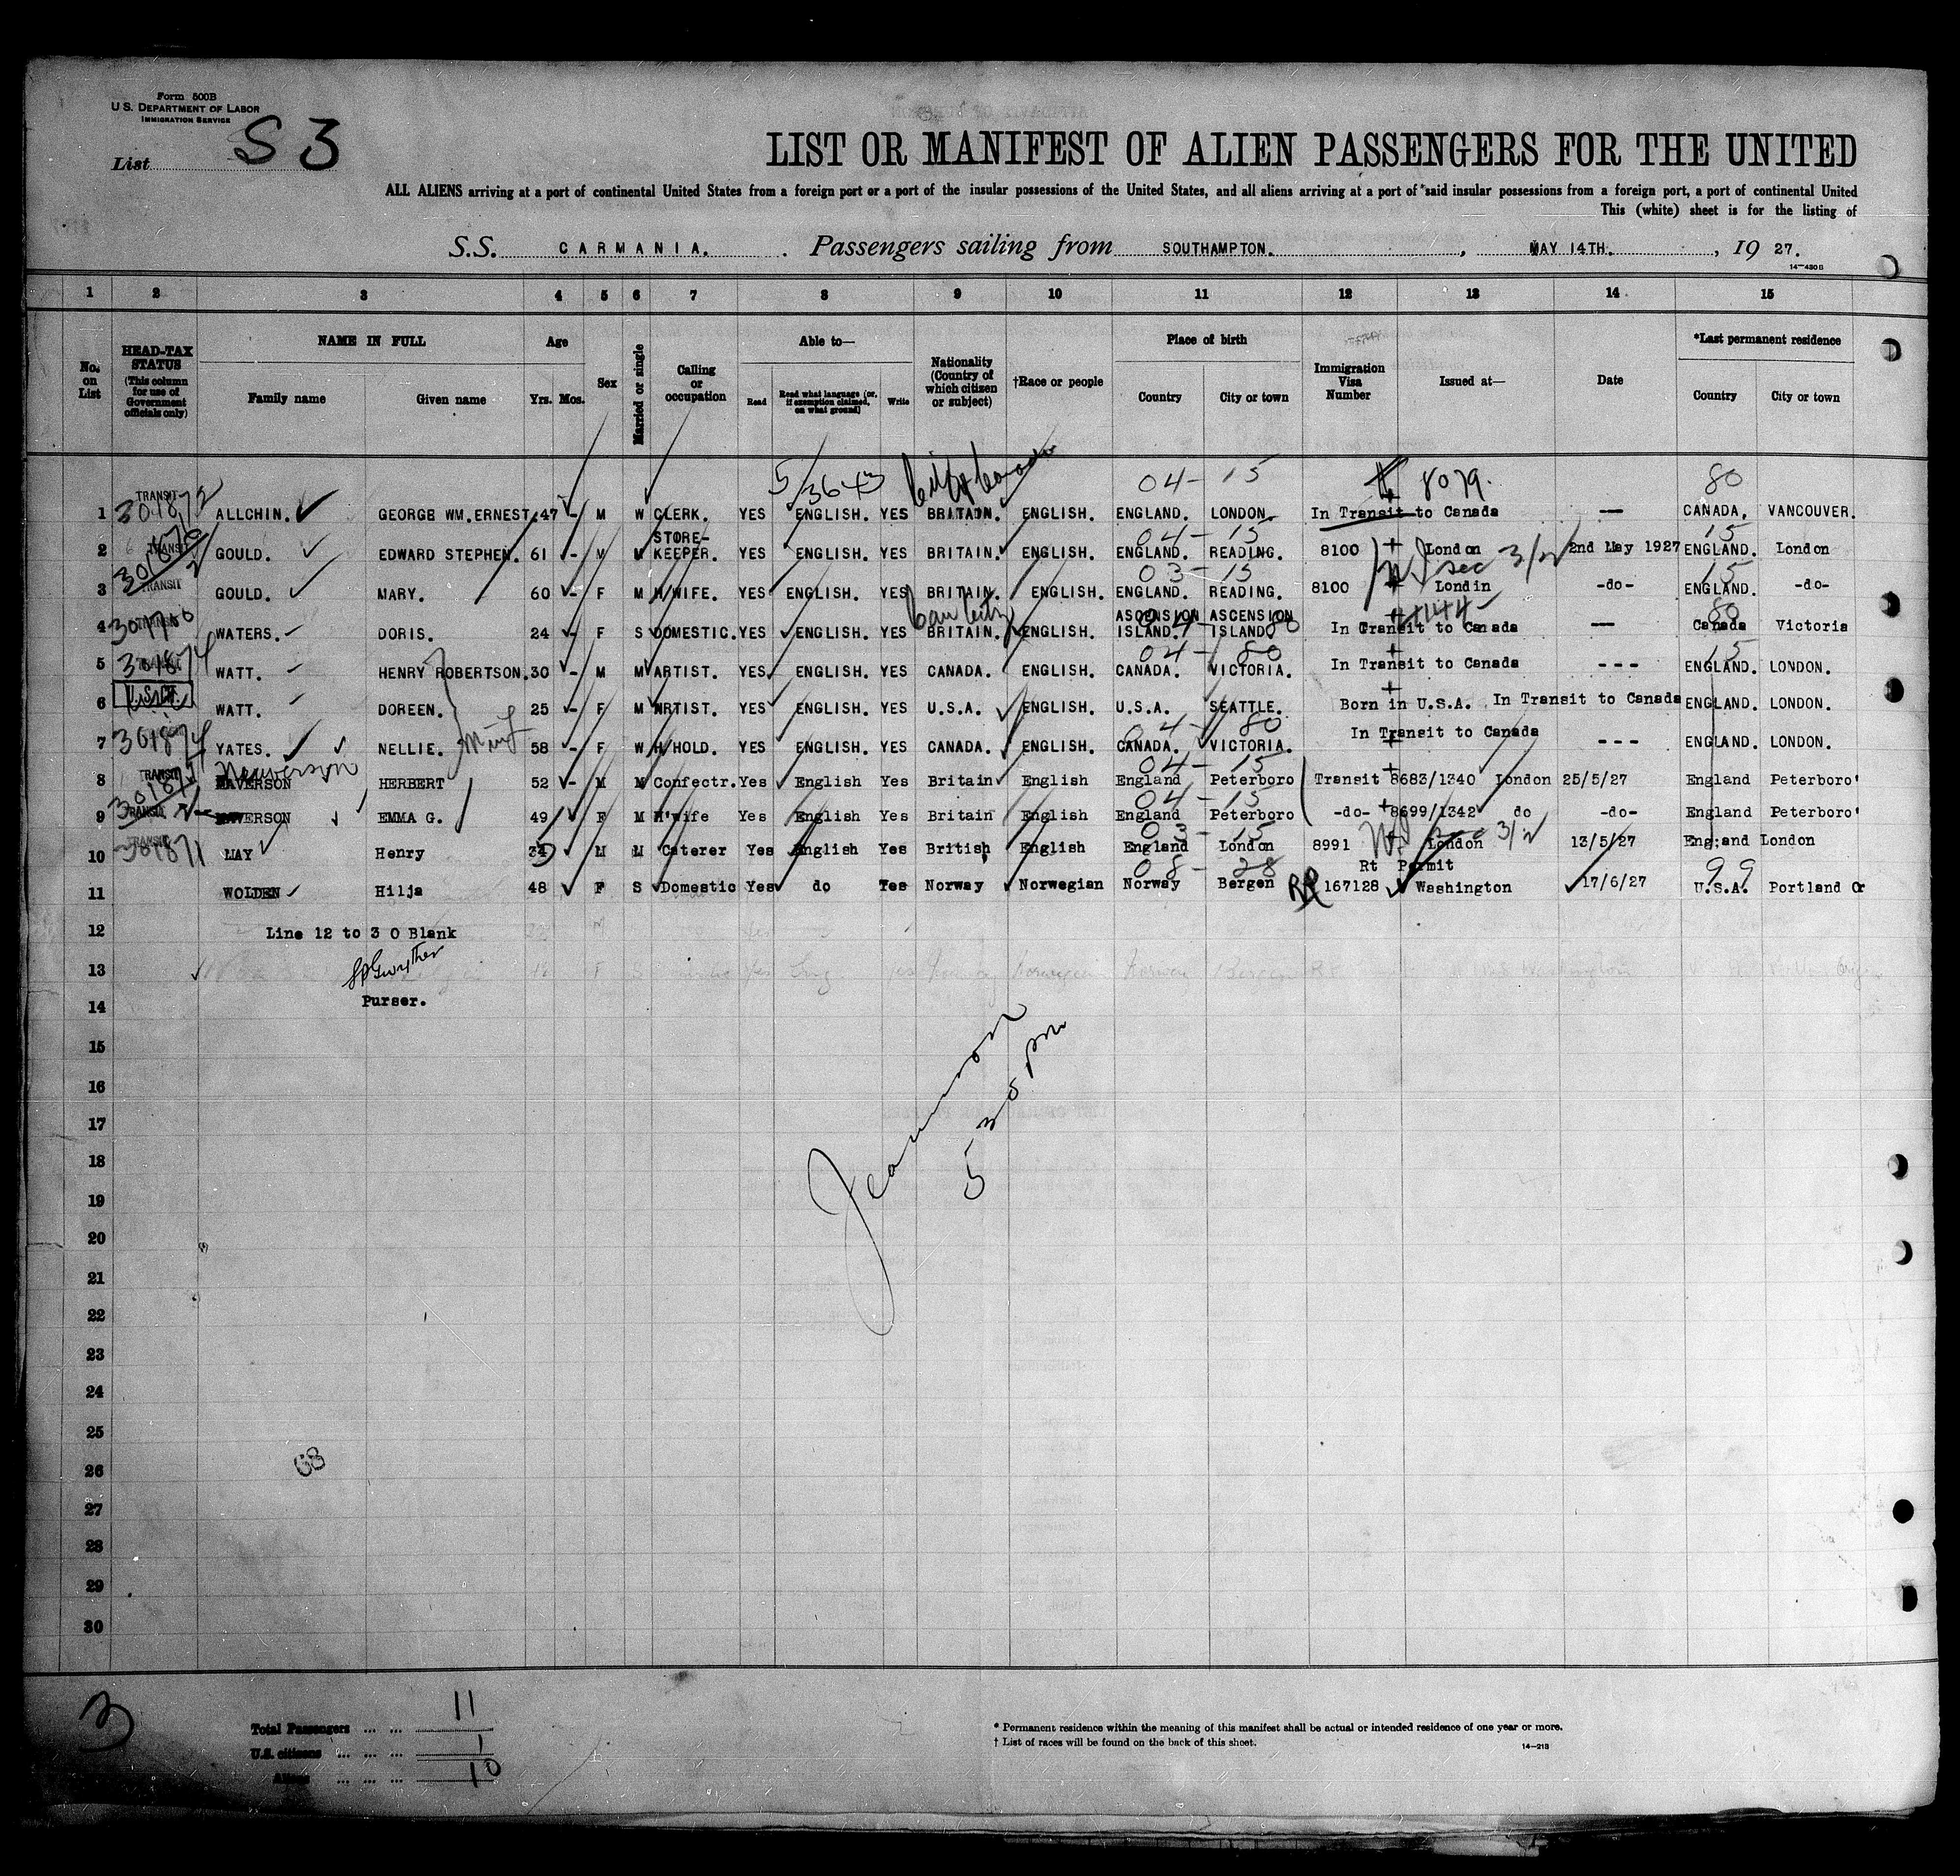 Form 500B
U.S. DEPARTMENT OF LABOR
IMMIGRATION SERVICE
List S 3
LIST OR MANIFEST OF ALIEN PASSENGERS FOR THE UNITED
ALL ALIENS arriving at a port of continental United States from a foreign port or a port of the insular possessions of the United States, and all aliens arriving at a port of said insular possessions from a foreign port, a port of continental United
This (white) sheet is for the listing of
S.S. CARMANIA. Passengers sailing from SOUTHAMPTON. , MAY 14TH. , 19 27.
14-430 B
1 2 3 4 5 6 7 8 9 10 11 12 13 14 15
No. on List
HEAD-TAX STATUS (This column for use of Government officials only)
NAME IN FULL
Family name Given name
Age
Yrs. Mos.
Sex
Married or single
Calling or occupation
Able to—
Read Read what language (or, if exemption claimed, on what ground) Write
Nationality (Country of which citizen or subject)
†Race or people
Place of birth
Country City or town
Immigration Visa Number
Issued at—
Date
*Last permanent residence
Country City or town
5/3643 04 - 15 8079. 80
1 TRANSIT 301872 ALLCHIN. GEORGE WM. ERNEST. 47 - M W CLERK. YES ENGLISH. YES BRITAIN. ENGLISH. ENGLAND. LONDON. In Transit to Canada — CANADA, VANCOUVER.
04 - 15 15
2 TRANSIT GOULD. EDWARD STEPHEN. 61 - M M STORE-KEEPER. YES ENGLISH. YES BRITAIN. ENGLISH. ENGLAND. READING. 8100 London 2nd May 1927 ENGLAND. London
03 - 15 sec 3/2 15
3 TRANSIT GOULD. MARY. 60 - F M H/WIFE. YES ENGLISH. YES BRITAIN. ENGLISH. ENGLAND. READING. 8100 Londin -do- ENGLAND. -do-
80
4 TRANSIT WATERS. DORIS. 24 - F S DOMESTIC. YES ENGLISH. YES BRITAIN. ENGLISH. ASCENSION ISLAND. ASCENSION ISLAND In Transit to Canada — Canada Victoria
04 - 80 15
5 301874 WATT. HENRY ROBERTSON. 30 - M M ARTIST. YES ENGLISH. YES CANADA. ENGLISH. CANADA. VICTORIA. In Transit to Canada --- ENGLAND. LONDON.
6 U.S.CIT. WATT. DOREEN. 25 - F M ARTIST. YES ENGLISH. YES U.S.A. ENGLISH. U.S.A. SEATTLE. Born in U.S.A. In Transit to Canada ENGLAND. LONDON.
04 - 80
7 301874 YATES. NELLIE. 58 - F W H/HOLD. YES ENGLISH. YES CANADA. ENGLISH. CANADA. VICTORIA. In Transit to Canada --- ENGLAND. LONDON.
Neaverson 04 - 15
8 TRANSIT HERBERT 52 - M M Confectr. Yes English Yes Britain English England Peterboro Transit 8683/1340 London 25/5/27 England Peterboro'
04 - 15
9 TRANSIT EMMA G. 49 F M H'wife Yes English Yes Britain English England Peterboro -do- 8699/1342 do -do- England Peterboro'
03 - 15 3/2
10 TRANSIT 301871 MAY Henry 34 M M Caterer Yes English Yes British English England London 8991 London 13/5/27 Eng;and London
08 - 28 Rt Permit 99
11 WOLDEN Hilja 48 F S Domestic Yes do Yes Norway Norwegian Norway Bergen 167128 Washington 17/6/27 U.S.A. Portland Or
12 Line 12 to 3 0 Blank
13
Purser.
14
15
16
17
18
19
20
21
22
23
24
25
26
27
28
29
30
5 30 pm
3
Total Passengers ... ... 11
U.S. citizens ... ... 1
Aliens ... ... 10
* Permanent residence within the meaning of this manifest shall be actual or intended residence of one year or more.
† List of races will be found on the back of this sheet.
14-213